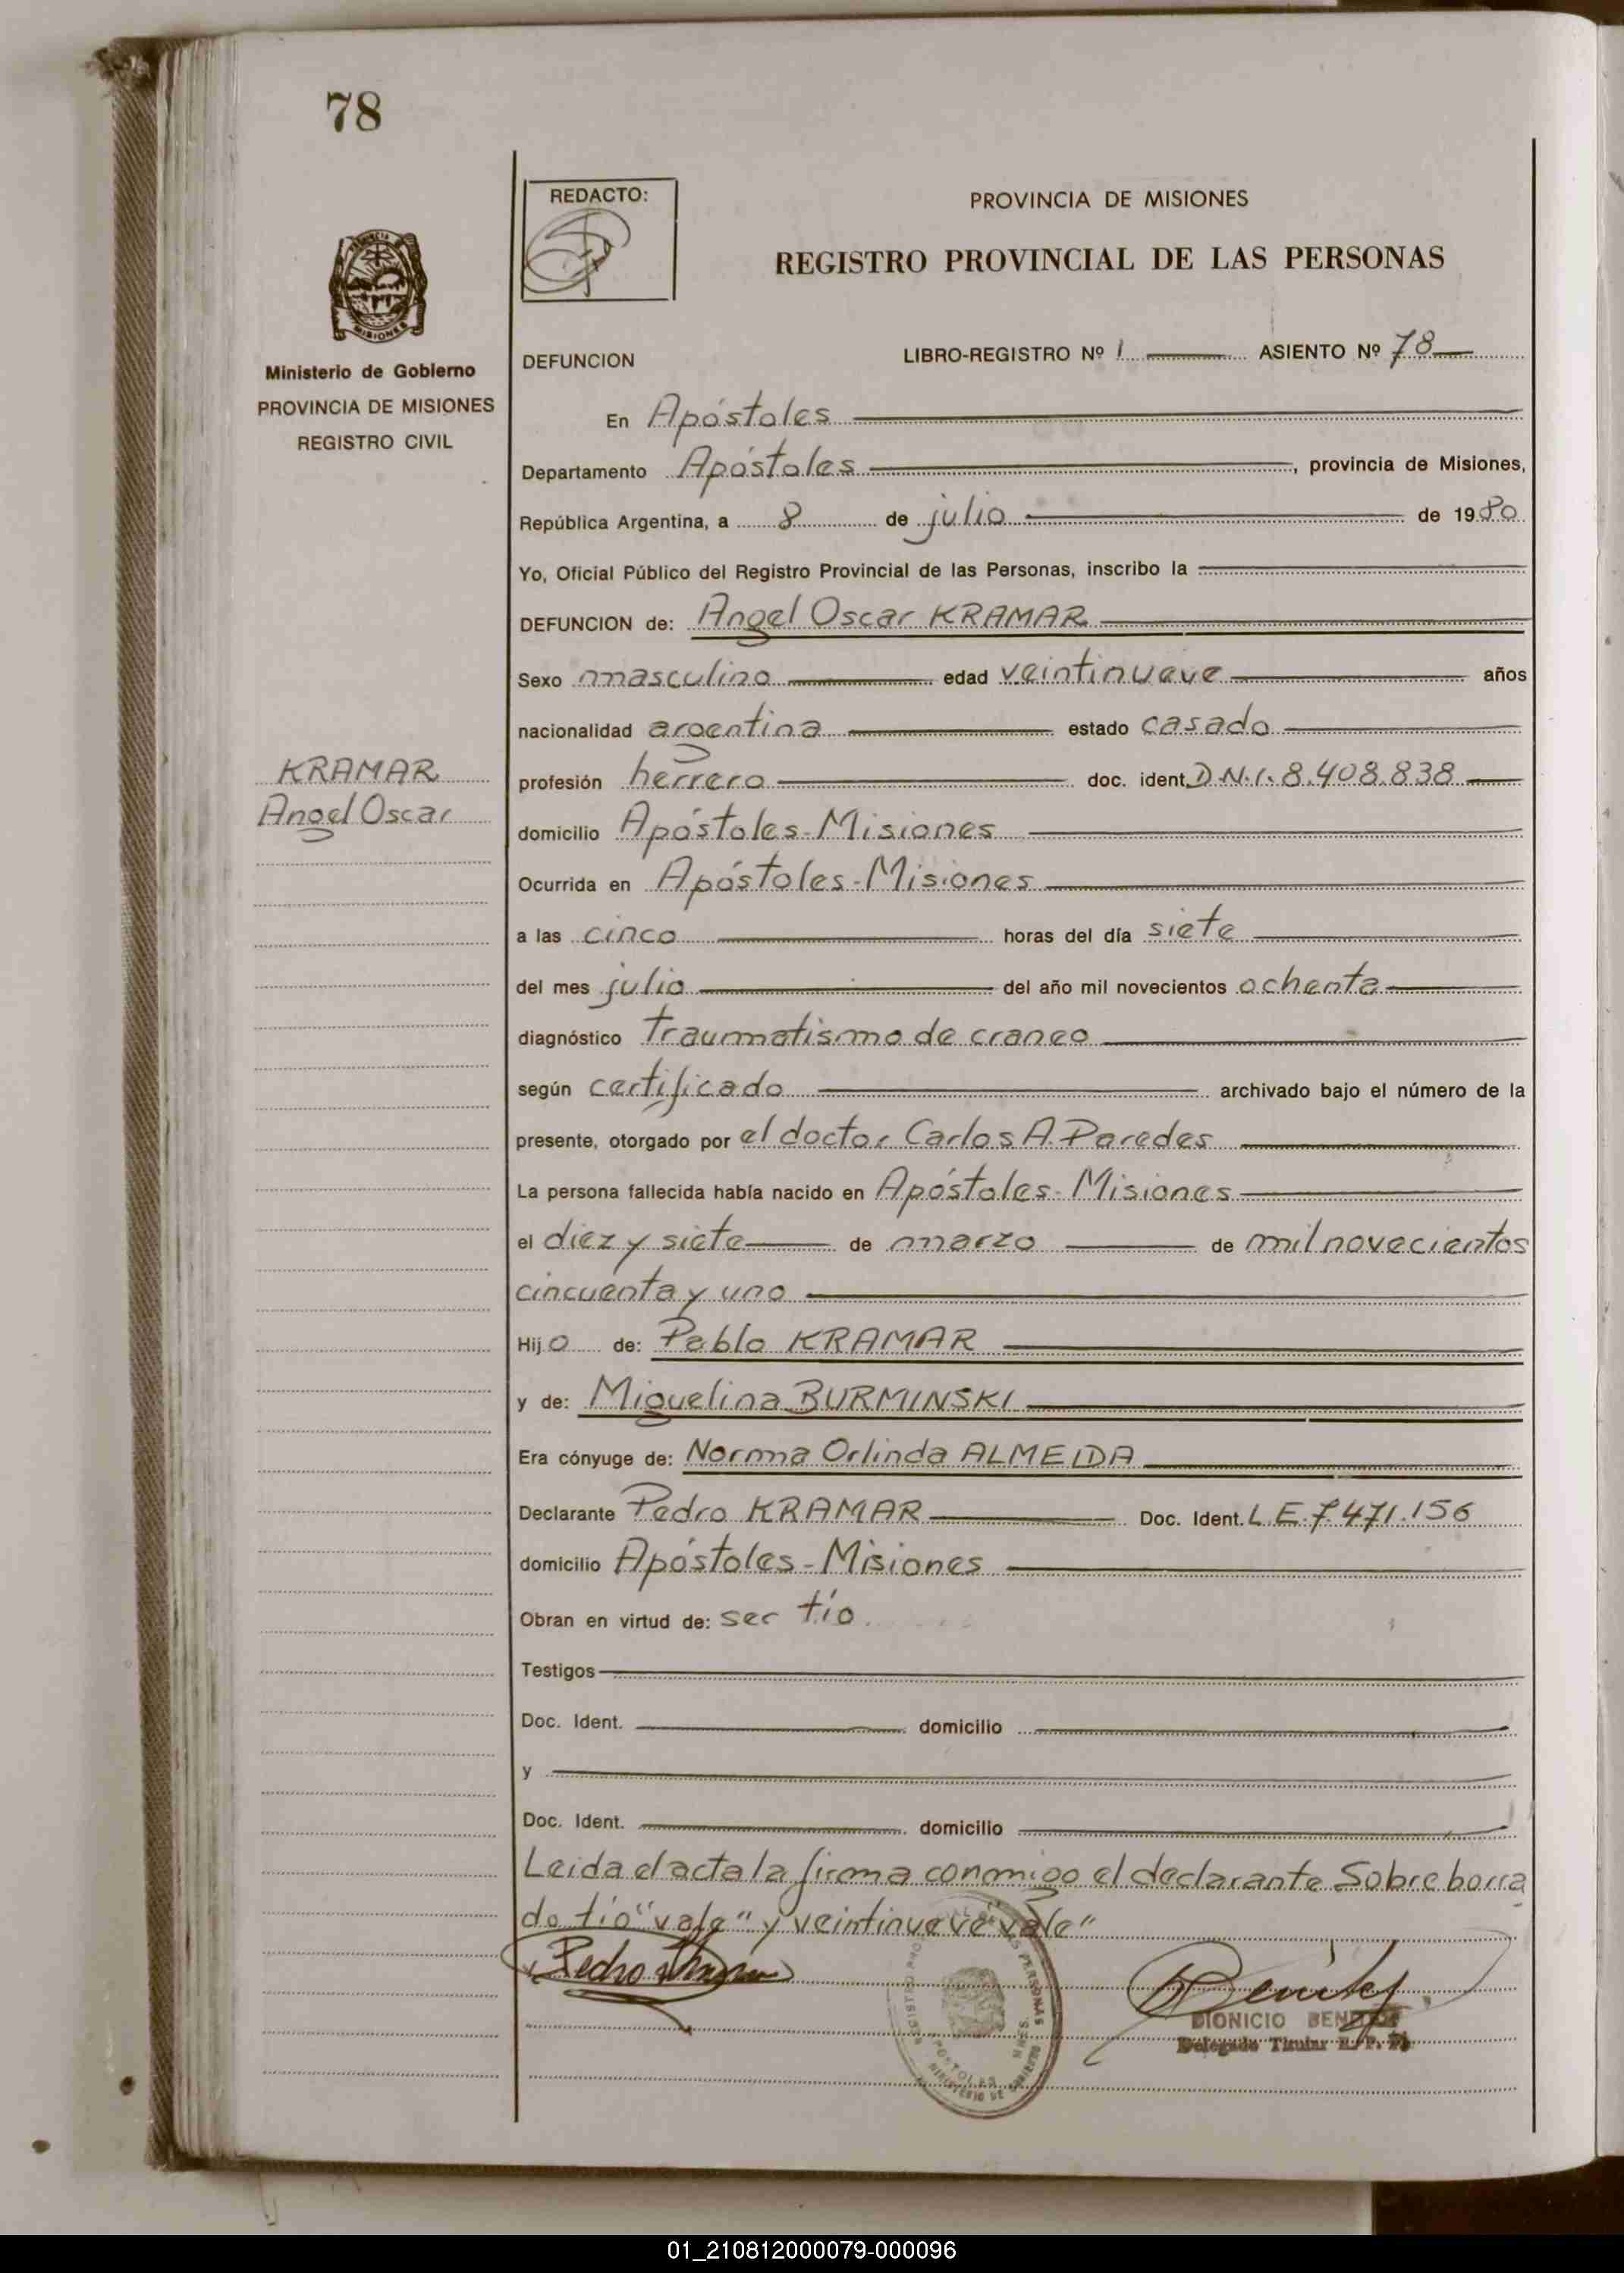 78
REDACTO:
PROVINCIA DE MISIONES
REGISTRO PROVINCIAL DE LAS PERSONAS
MISIONES
Ministerio de Gobierno
PROVINCIA DE MISIONES
REGISTRO CIVIL
DEFUNCION LIBRO-REGISTRO Nº 1 ASIENTO Nº 78
En Apóstoles
Departamento Apóstoles, provincia de Misiones,
República Argentina, a 8 de julio de 1980
Yo, Oficial Público del Registro Provincial de las Personas, inscribo la
DEFUNCION de: Angel Oscar KRAMAR
Sexo masculino edad veintinueve años
nacionalidad argentina estado casado
KRAMAR
Angel Oscar
profesión herrero doc. ident. D.N.I. 8.408.838
domicilio Apóstoles-Misiones
Ocurrida en Apóstoles-Misiones
a las cinco horas del día siete
del mes julio del año mil novecientos ochenta
diagnóstico traumatismo de craneo
según certificado archivado bajo el número de la
presente, otorgado por el doctor Carlos A. Paredes
La persona fallecida había nacido en Apóstoles-Misiones
el diez y siete de marzo de mil novecientos
cincuenta y uno
Hijo de: Pablo KRAMAR
y de: Miguelina BURMINSKI
Era cónyuge de: Norma Orlinda ALMEIDA
Declarante Pedro KRAMAR Doc. Ident. L.E. 7.471.156
domicilio Apóstoles-Misiones
Obran en virtud de: ser tío.
Testigos
Doc. Ident. domicilio
y
Doc. Ident. domicilio
Leida el acta la firma conmigo el declarante Sobre borra
do tío "vale" y veintinueve vale"
Pedro
DIONICIO
Delegado Titular R. P. P.
01_210812000079-000096